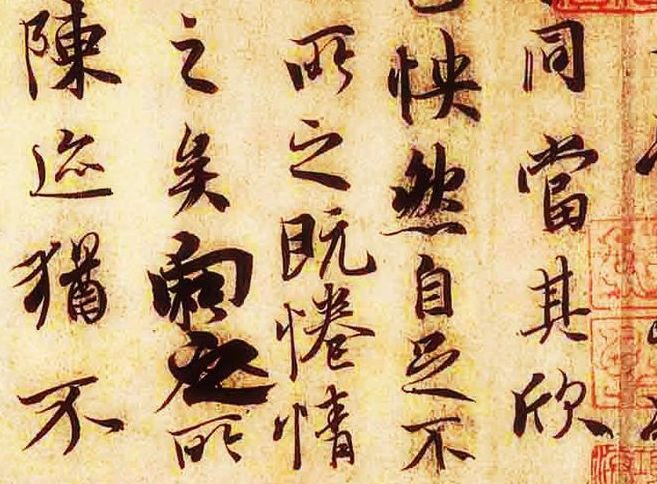 同當其欣
怏然自足不
所之既惓情
之矣向之所
陳迹猶不